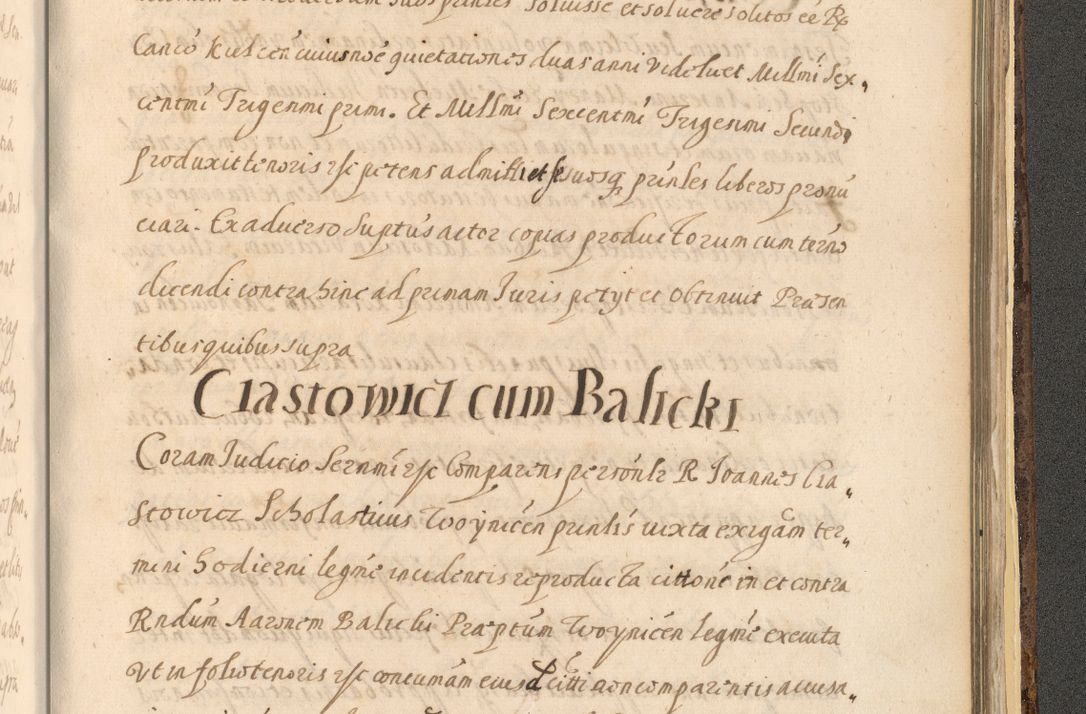 soluisse et soluere solitos eē Rg
Canco Kielcen cuiusnōe quietationes duas anni videlicet Millmi Sex„
centmi Trigenmi primi. Et Millmi Sexcentmi Trigesimi Secundi
produxit tenoris rsc petens admitti et se suosq prinles liberos pronū
ciari. Ex aduerso suptus actor copias productorum cum termō
dicendi contra hinc ad primam Juris petyt et obtinuit Præsen
tibus quibus supra
Ciastowicz cum Balicki
Coram Judicio Sernmi rsc Comparens personlr R Joannes Cia„
stowicz Scholasticus Woynicen prinlis iuxta exigam ter„
mini hodierni legme incidentis reproducta cittone in et contra
Rndum Aaronem Balicki Præptum Woynicen legme executa
vt in folio tenoris rsc concumam eiusd citti non comparentis accusa„